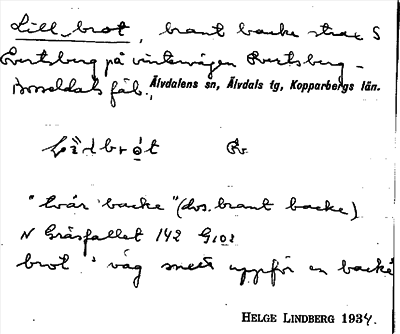 Lill-brot, brant backe strax S
Evertsberg på vintervägen Evertsberg –
fäb., Älvdalens sn, Älvdals tg, Kopparbergs län.
"tvär backe" (dvs. brant backe)
N Gråsfallet 142
brot 'väg snett uppför en backe'
HELGE LINDBERG 1934.